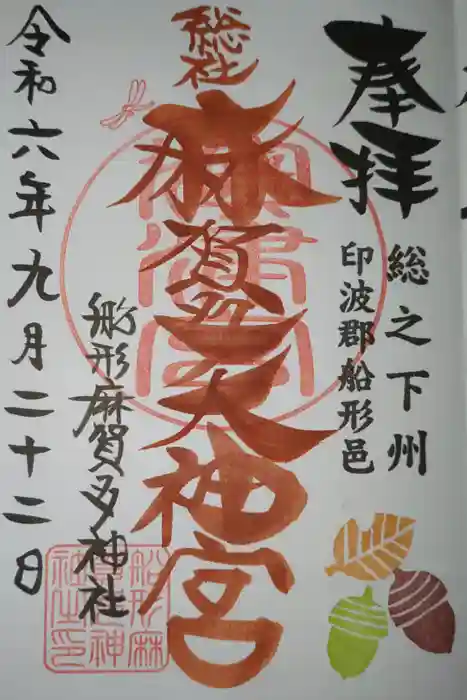 奉拝
総之下州
印波郡船形邑
総社
麻賀多大神宮
船形麻賀多神社
令和六年九月二十二日